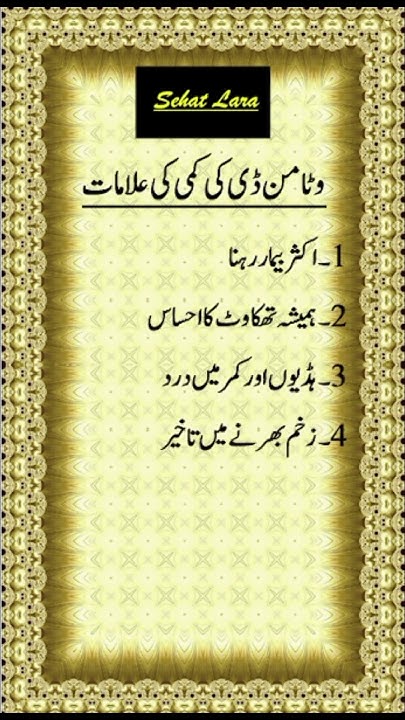 Sehat Lara
وٹامن ڈی کی کمی کی علامات
1۔ اکثر بیمار رہنا
2۔ ہمیشہ تھکاوٹ کا احساس
3۔ ہڈیوں اور کمر میں درد
4۔ زخم بھرنے میں تاخیر